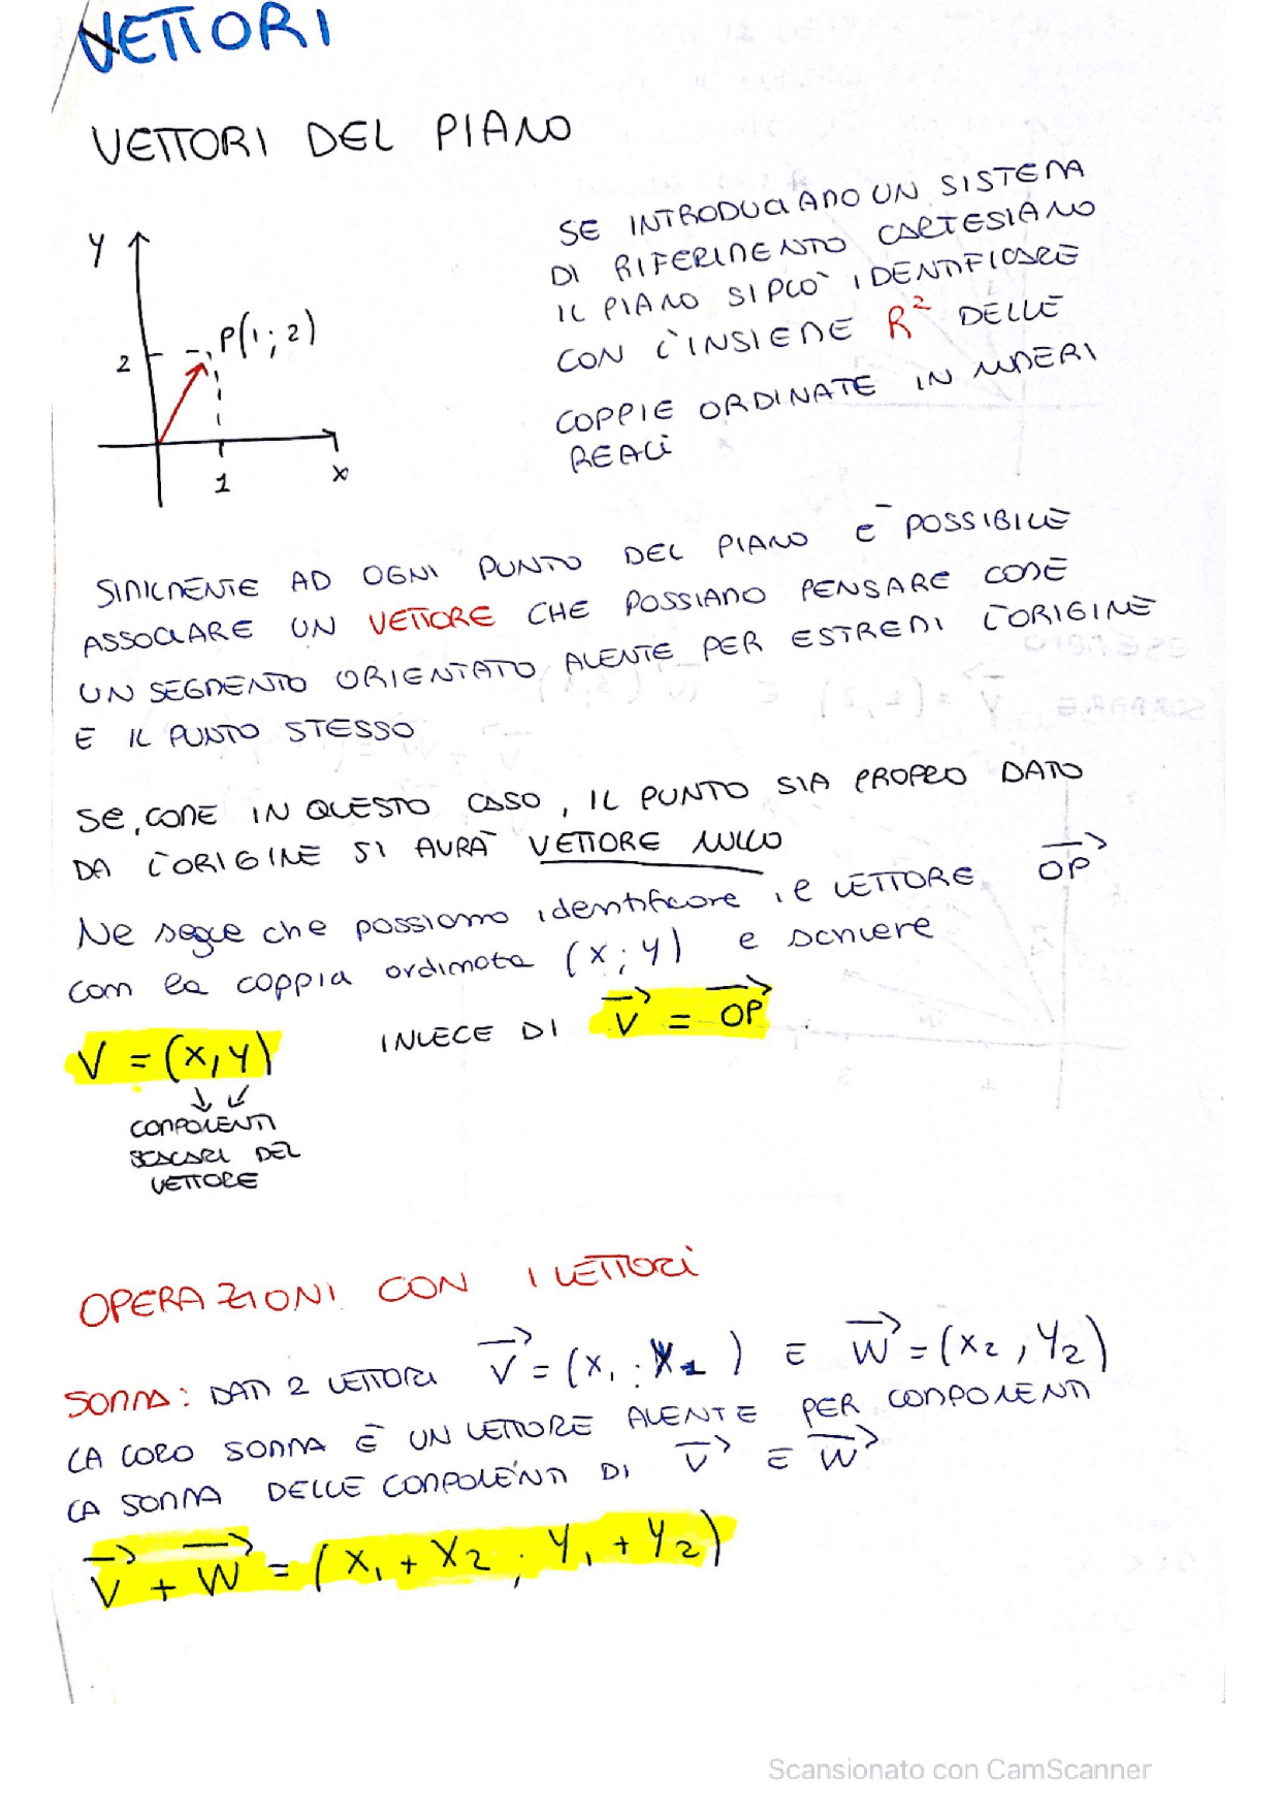 VETTORI
VETTORI DEL PIANO
SE INTRODUCIAMO UN SISTEMA
DI RIFERIMENTO CARTESIANO
IL PIANO SI PUO' IDENTIFICARE
CON L'INSIEME R² DELLE
COPPIE ORDINATE IN NUMERI
REALI
y
2
P(1;2)
1
x
SIMILMENTE AD OGNI PUNTO DEL PIANO E' POSSIBILE
ASSOCIARE UN VETTORE CHE POSSIAMO PENSARE COME
UN SEGMENTO ORIENTATO AVENTE PER ESTREMI L'ORIGINE
E IL PUNTO STESSO
SE, COME IN QUESTO CASO, IL PUNTO SIA PROPRO DATO
DA L'ORIGINE SI AVRA' VETTORE NULLO
Ne segue che possiamo identificare il VETTORE OP
con la coppia ordinata (x;y) e scrivere
V = (x,y) INVECE DI V = OP
COMPONENTI
SCALARI DEL
VETTORE
OPERAZIONI CON I VETTORI
SOMMA: DATI 2 VETTORI V = (x₁ ; ) E W = (x₂, y₂)
LA LORO SOMMA È UN VETTORE AVENTE PER COMPONENTI
LA SOMMA DELLE COMPONENTI DI V E W
V + W = (x₁ + x₂ ; y₁ + y₂)
Scansionato con CamScanner